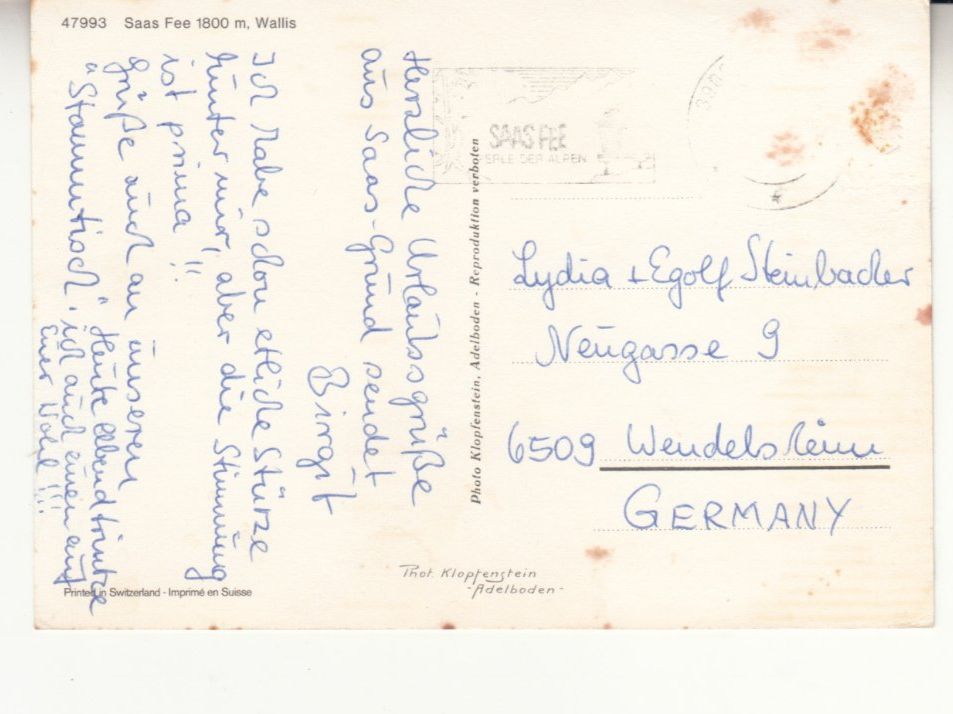 47993 Saas Fee 1800 m, Wallis
Herzliche Urlaubsgrüße
aus Saas-Grund sendet
Birgit
Ich habe schon etliche Stürze
hinter mir, aber die Stimmung
ist prima!!
Grüße auch an unseren
"Stammtisch". Heute Abend trinke
ich auch einen auf
Euer Wohl!!!
Printed in Switzerland - Imprimé en Suisse
Photo Klopfenstein, Adelboden - Reproduktion verboten
Phot. Klopfenstein
-Adelboden-
SAAS FEE
PERLE DER ALPEN
Lydia + Egolf Steinbacher
Neugasse 9
6509 Wendelsheim
GERMANY